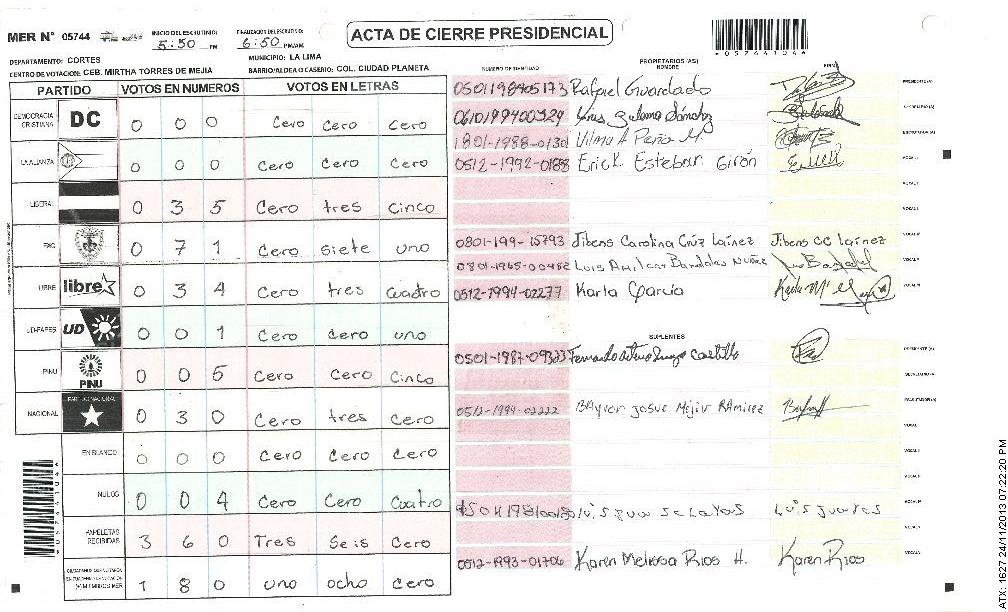 MER N° 05744
INICIO DEL ESCRUTINIO: 5:50 PM
FINALIZACION DEL ESCRUTINIO: 6:50 PM/AM
ACTA DE CIERRE PRESIDENCIAL
*057441044*
DEPARTAMENTO: CORTES
MUNICIPIO: LA LIMA
CENTRO DE VOTACION: CEB. MIRTHA TORRES DE MEJIA
BARRIO/ALDEA O CASERIO: COL. CIUDAD PLANETA
PARTIDO VOTOS EN NUMEROS VOTOS EN LETRAS
DEMOCRACIA CRISTIANA DC 0 0 0 Cero Cero Cero
LA ALIANZA 0 0 0 Cero Cero Cero
LIBERAL 0 3 5 Cero tres Cinco
PAC 0 7 1 Cero siete uno
LIBRE libre 0 3 4 Cero tres Cuatro
UD-FAPER UD 0 0 1 Cero Cero uno
PINU PINU 0 0 5 Cero Cero Cinco
NACIONAL PARTIDO NACIONAL 0 3 0 Cero tres Cero
EN BLANCO 0 0 0 Cero Cero Cero
NULOS 0 0 4 Cero Cero Cuatro
PAPELETAS RECIBIDAS 3 6 0 Tres Seis Cero
1 8 0 uno ocho Cero
NUMERO DE IDENTIDAD
PROPIETARIOS (AS)
NOMBRE
FIRMA
0501198405173 Rafael Guardado PRESIDENTE(A)
0610199400329 Sulema Sánchez SECRETARIO(A)
1801-1988-0130 Vilma A Peña M. ESCRUTADOR(A)
0512-1992-0188 Erick Esteban Girón VOCAL I
VOCAL II
0801-199-15793 Jibens Carolina Cruz Laínez Jibens CC Laínez
0801-1965-00482 Luis
0512-1994-02277 Karla García
SUPLENTES
0501-1987-09323 Fernando Castillo PRESIDENTE (A)
SECRETARIO/A
0512-1994-02222 BAyron josue Mejia RAmirez ESCRUTADOR(A)
Luis
0512-1993-01706 Karen Melissa Rios H. Karen Rios
ATX: 1627 24/11/2013 07:22:20 PM